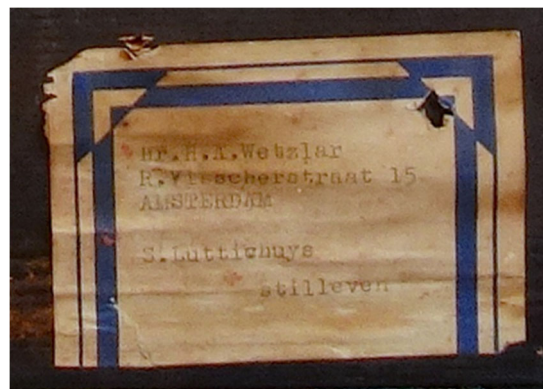 Mr.H.A.Wetzlar
R.Visscherstraat 15
AMSTERDAM
S.Luttichuys
stilleven